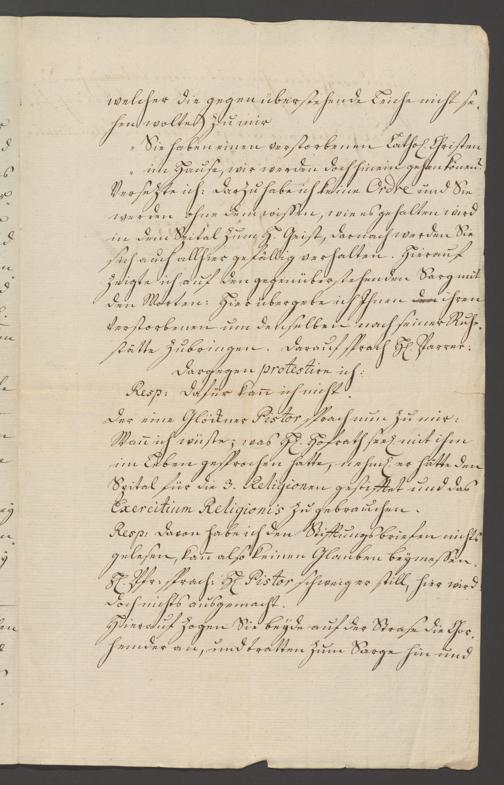 welcher die gegen überstehende Leiche nicht se-
hen wolte) zu mir
" Sie haben einen verstorbenen Cathol. Christen
" im Hause, wir werden doch hinein gehen können.
Versetzte ich: dazu habe ich keine Ordre und Sie
werden ohne dem wissen, wie es gehalten wird
in dem Spital zum H. Geist, darnach werden Sie
sich auch allhier gefällig verhalten. Hierauf
zeigte ich auf den gegenüberstehenden Sarg mit
den Worten: Hier übergebe ich Ihnen ihren
verstorbenen um denselben nach seiner Ruhe-
stätte zubringen. darauf sprach H. Parrer:
dargegen protestire ich:
Resp: dafür kann ich nicht.
der eine Glöckner Pistor sprach nun zu mir:
Wann ich wüste; was H. Hofrath seel. mit ihm
im Leben gesprochen hätte, er hätte den
Spital für die 3. Religionen gestifftet und das
Exercitium Religionis zu gebrauchen.
Resp: davon habe ich den Stifftungsbriefen nichts
gelesen, kann also keinen Glauben beymessen.
H. Pfr. sprach: H. Pistor schweig er still, hier wird
doch nichts ausgemacht.
Hierauf zogen Sie beyde auf der Strase die Chor-
hemder an, und tratten zum Sarge hin und